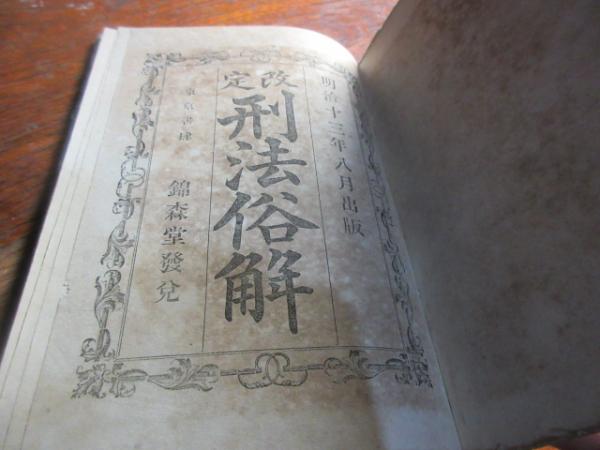 明治十三年八月出版
改定
刑法俗解
東京書肆
錦森堂發兌